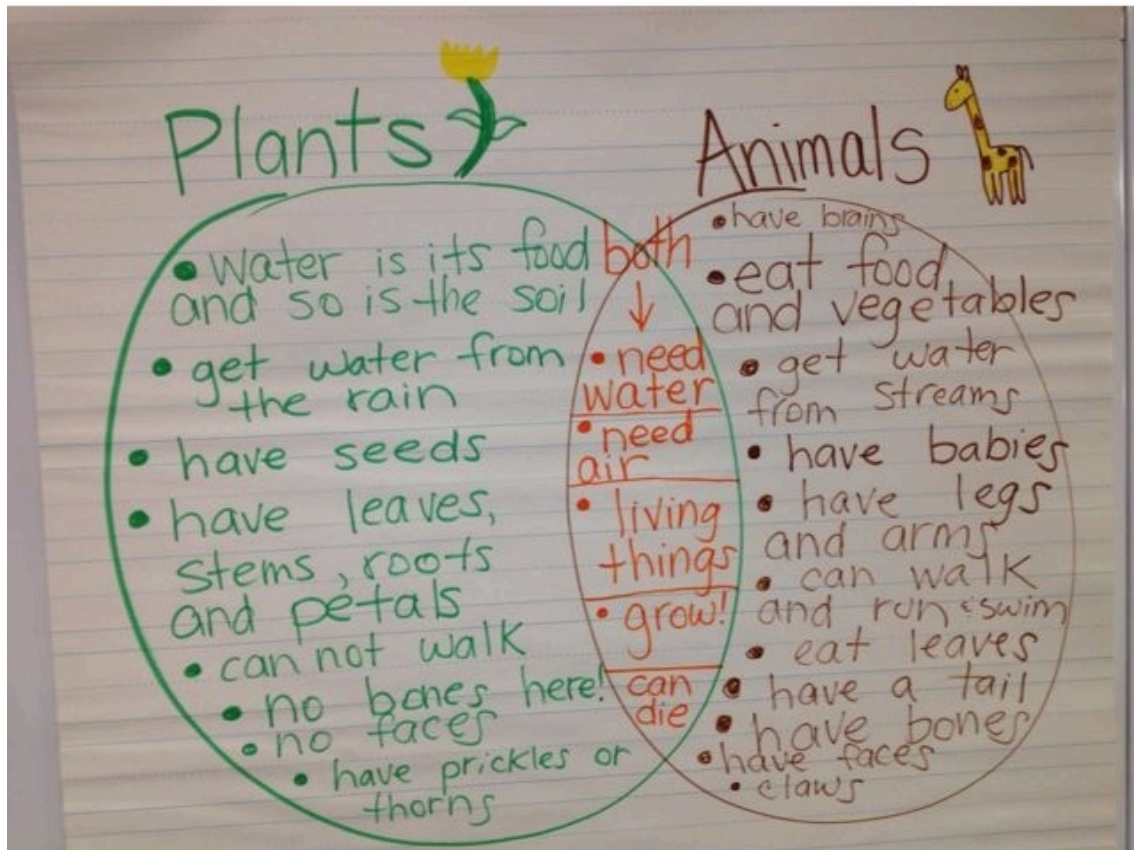 Plants
• Water is its food
and so is the soil
• get water from
the rain
• have seeds
• have leaves,
stems, roots
and petals
• can not walk
• no bones here!
• no faces
• have prickles or
thorns
both
↓
• need
water
• need
air
• living
things
• grow!
can
die
Animals
• have brains
• eat food
and vegetables
• get water
from streams
• have babies
• have legs
and arms
• can walk
and run & swim
• eat leaves
• have a tail
• have bones
• have faces
• claws